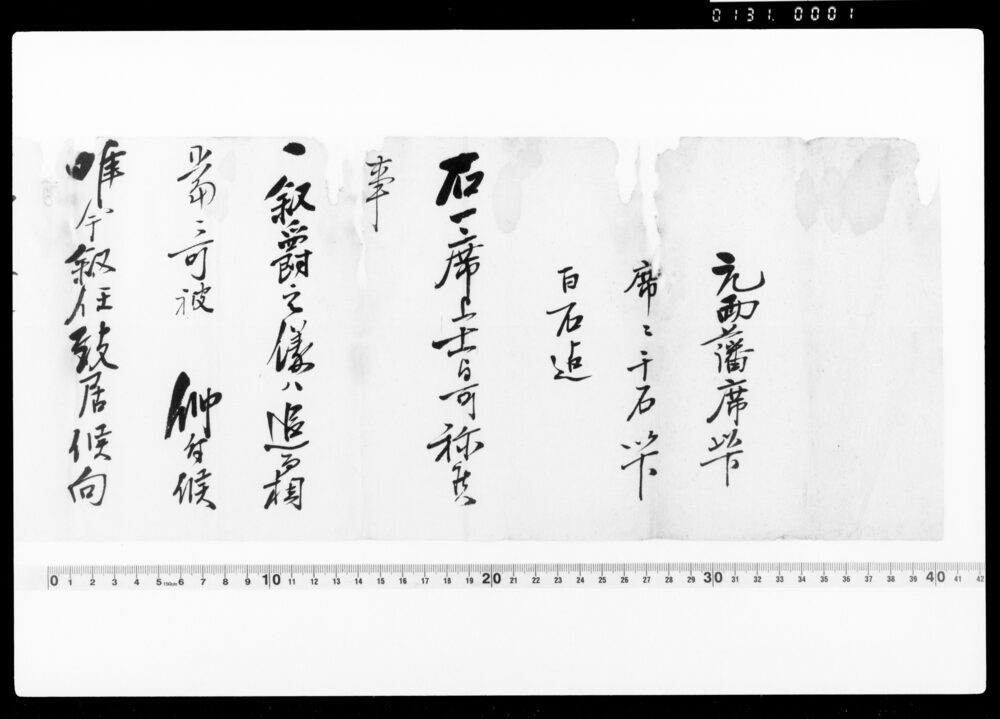 0131.0001
元両藩席以下
席々千石以下
百石迠
右之席上士与可称候
事
一叙爵之儀ハ追而相
当ニ可被 仰付候
唯今叙任致居候向
0 1 2 3 4 5 150cm 6 7 8 9 10 11 12 13 14 15 16 17 18 19 20 21 22 23 24 25 26 27 28 29 30 31 32 33 34 35 36 37 38 39 40 41 42